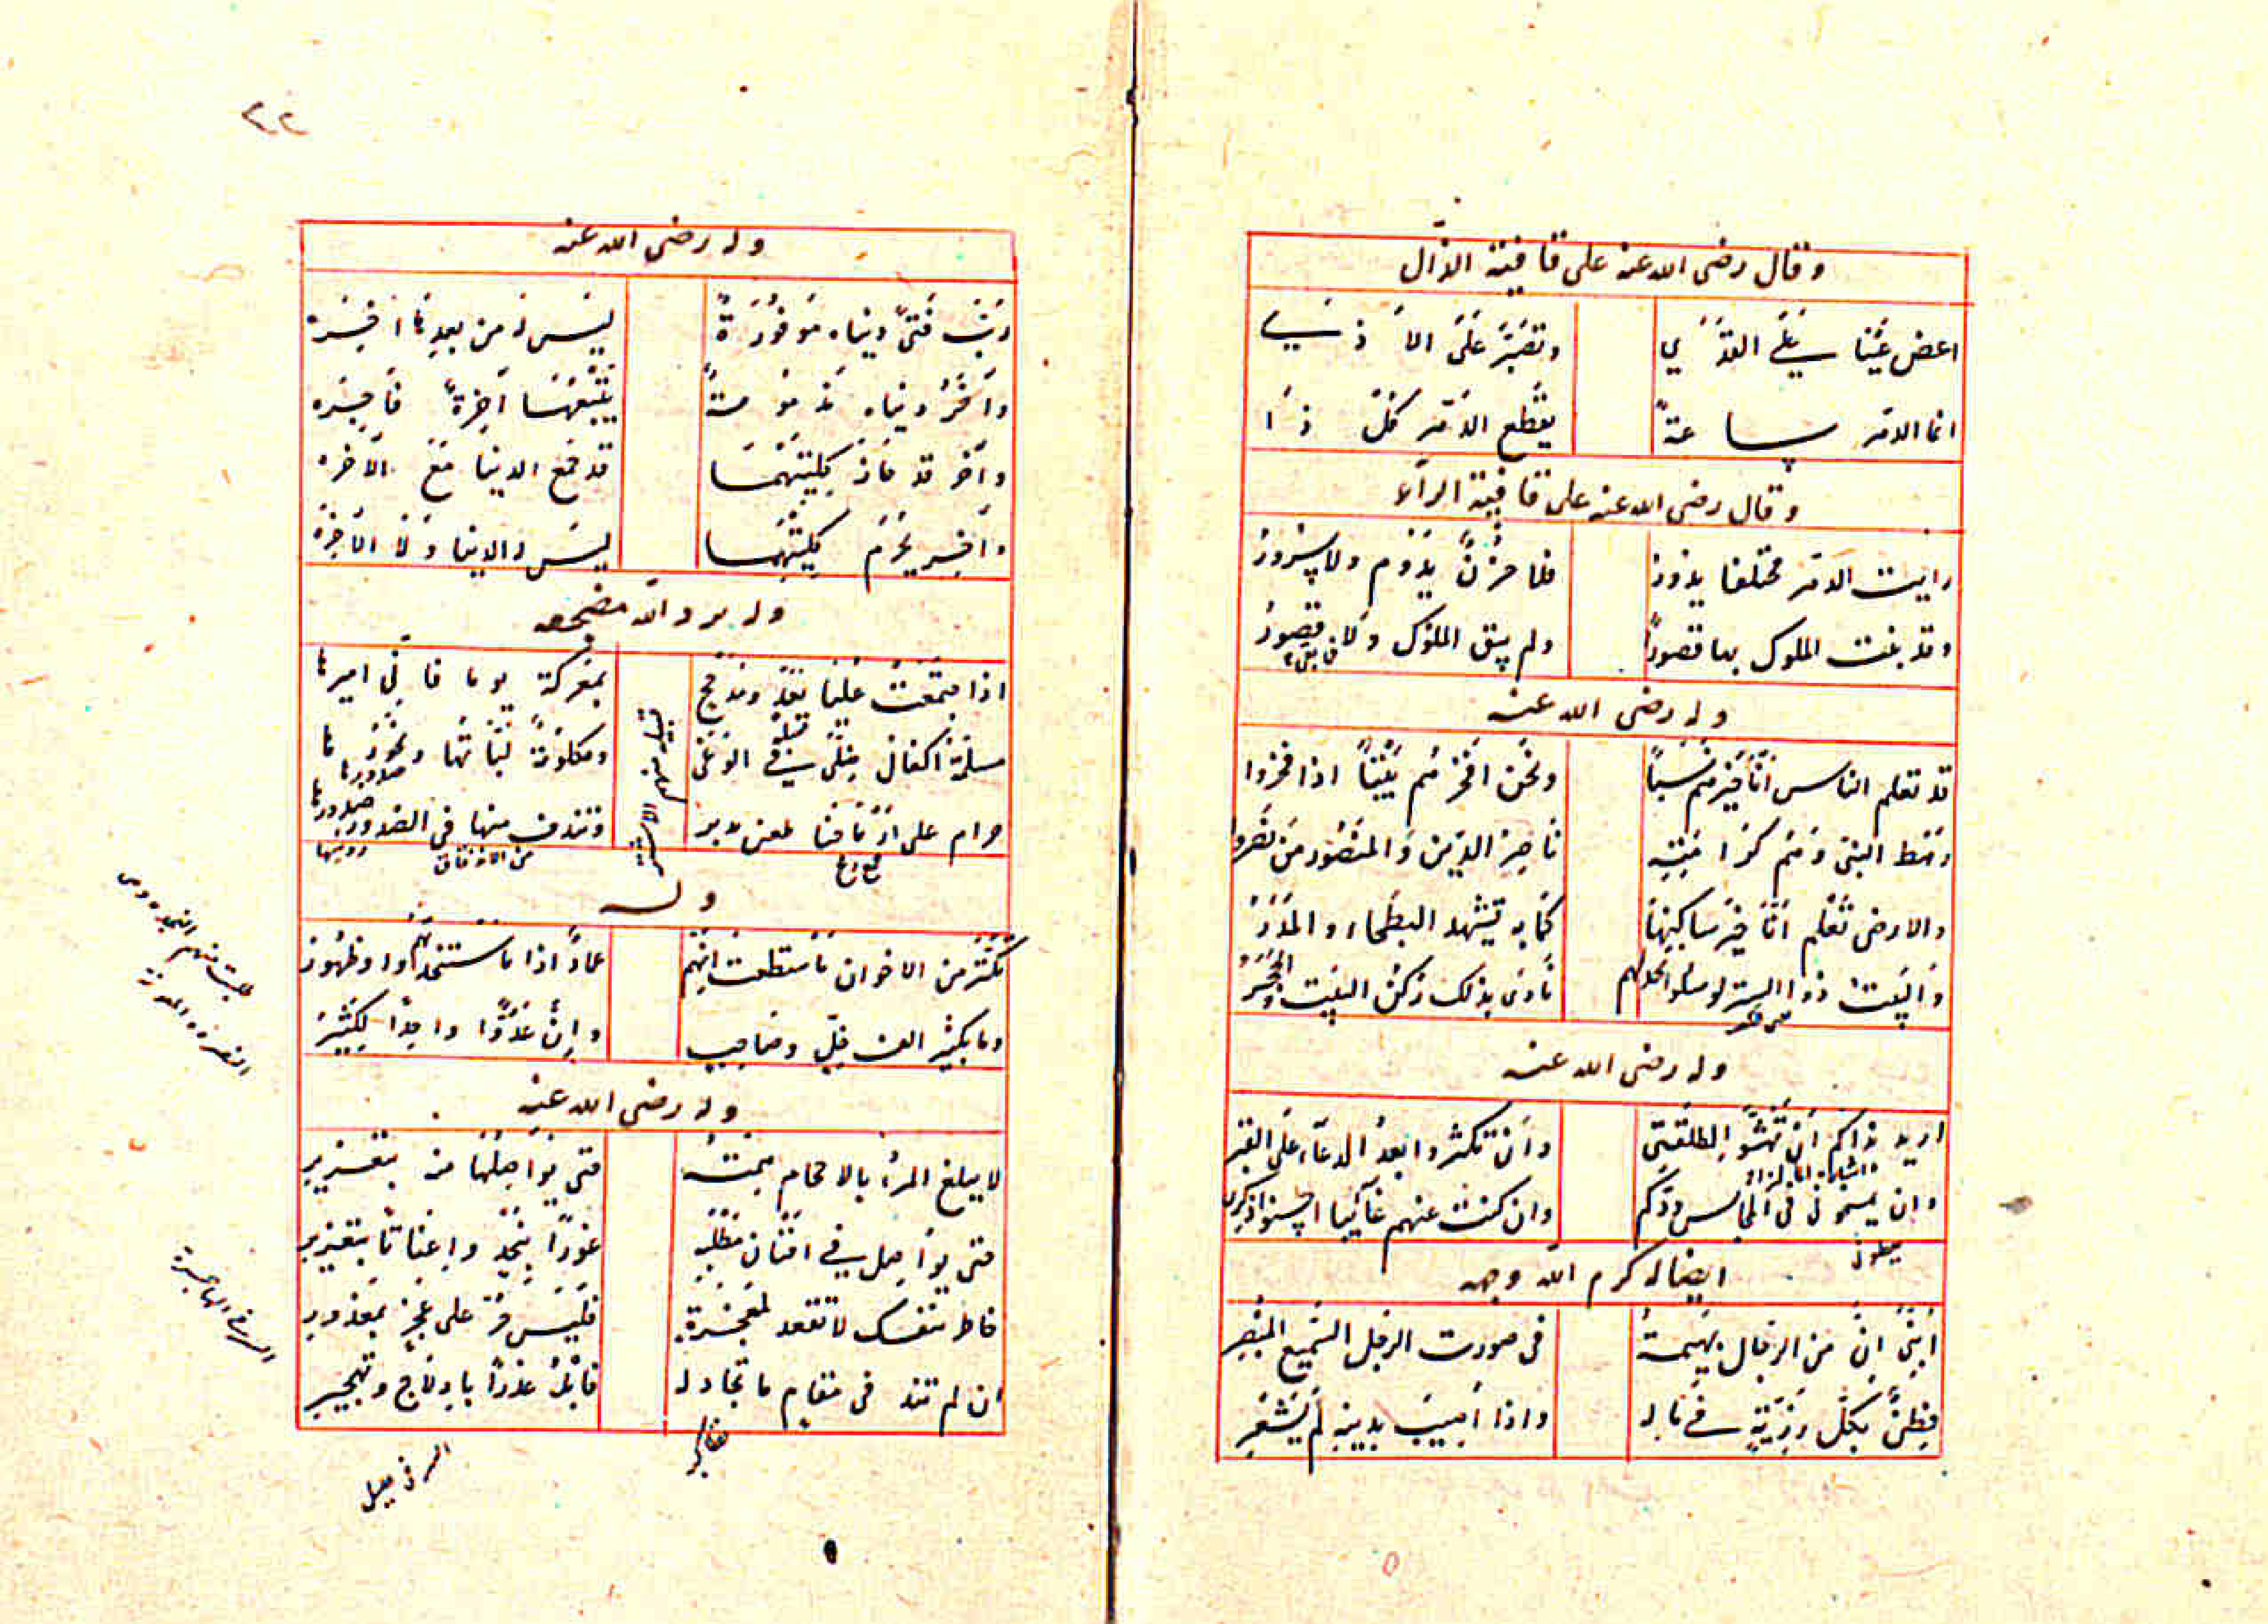 وقال رضى الله عنه على قافية الذال
اغض عينا على القذى وتصبر على الاذى
انما الدهر ساعة يقطع الدهر كل ذا
وقال رضى الله عنه على قافية الراء
رايت الدهر مختلفا يدور فلا حزن يدوم ولا سرور
وقد بنت الملوك بها قصورا ولم يبق الملوك ولا قصور
وله رضى الله عنه
قد تعلم الناس انا خيرهم نسبا ونحن افخرهم بيتا اذا فخروا
رهط النبى وهم كرامته ناصر الدين والمنصور من نصروا
والارض تعلم انا خير ساكنها كما به تشهد البطحاء والمدر
والبيت ذو الستر لو سئلوا نادى بذلك ركن البيت والحجر
وله رضى الله عنه
اريد بذاكم ان تهشوا لطلقتى وان تكثروا بعدى الدعاء على القبر
وان فى المجالس ودكم وان كنت عنهم غائبا
ايضا له كرم الله وجهه
ابنى ان من الرجال بهيمة فى صورت الرجل السميع المبصر
فطن بكل رزية فى ماله واذا اصيب بدينه لم يشعر
٤٢
وله رضى الله عنه
رب فتى دنياه موفورة ليس له من بعدها اخرة
واخر دنياه مذمومة يتبعها اخرة فاخره
واخر قد فاز بكليتهما قد جمع الدنيا مع الاخره
واخر يحرم كليتهما ليس له الدنيا ولا الاخرة
وله برد الله مضجعه
اذا اجتمعت عليا معد ومذحج بمعركة يوما فانى اميرها
مسلمة اكفال خيلى فى الوغى ومكلومة لباتها ونحورها
حرام على ارماحنا طعن مدبر وتندق منها فى الصدور صدورها
وله
تكثر من الاخوان ما استطعت انهم عماد اذا ما استنجدتهم وظهور
وما بكثير الف خل وصاحب وان عدوا واحدا لكثير
وله رضى الله عنه
لا يبلغ المرء بالاحجام همته حتى يواصلها منه بتغرير
حتى يواصل فى افنان مطلبه غورا بنجد واعناتا بتغرير
خاطر بنفسك لا تقعد بمعجزة فليس حر على عجز بمعذور
ان لم تنل فى مقام ما تحاوله فابل عذرا بادلاج وتهجير